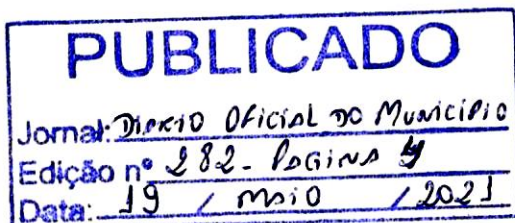 PUBLICADO
Jornal: Diario Oficial do Municipio
Edição nº 282 - Pagina
Data: 19 / maio / 2021